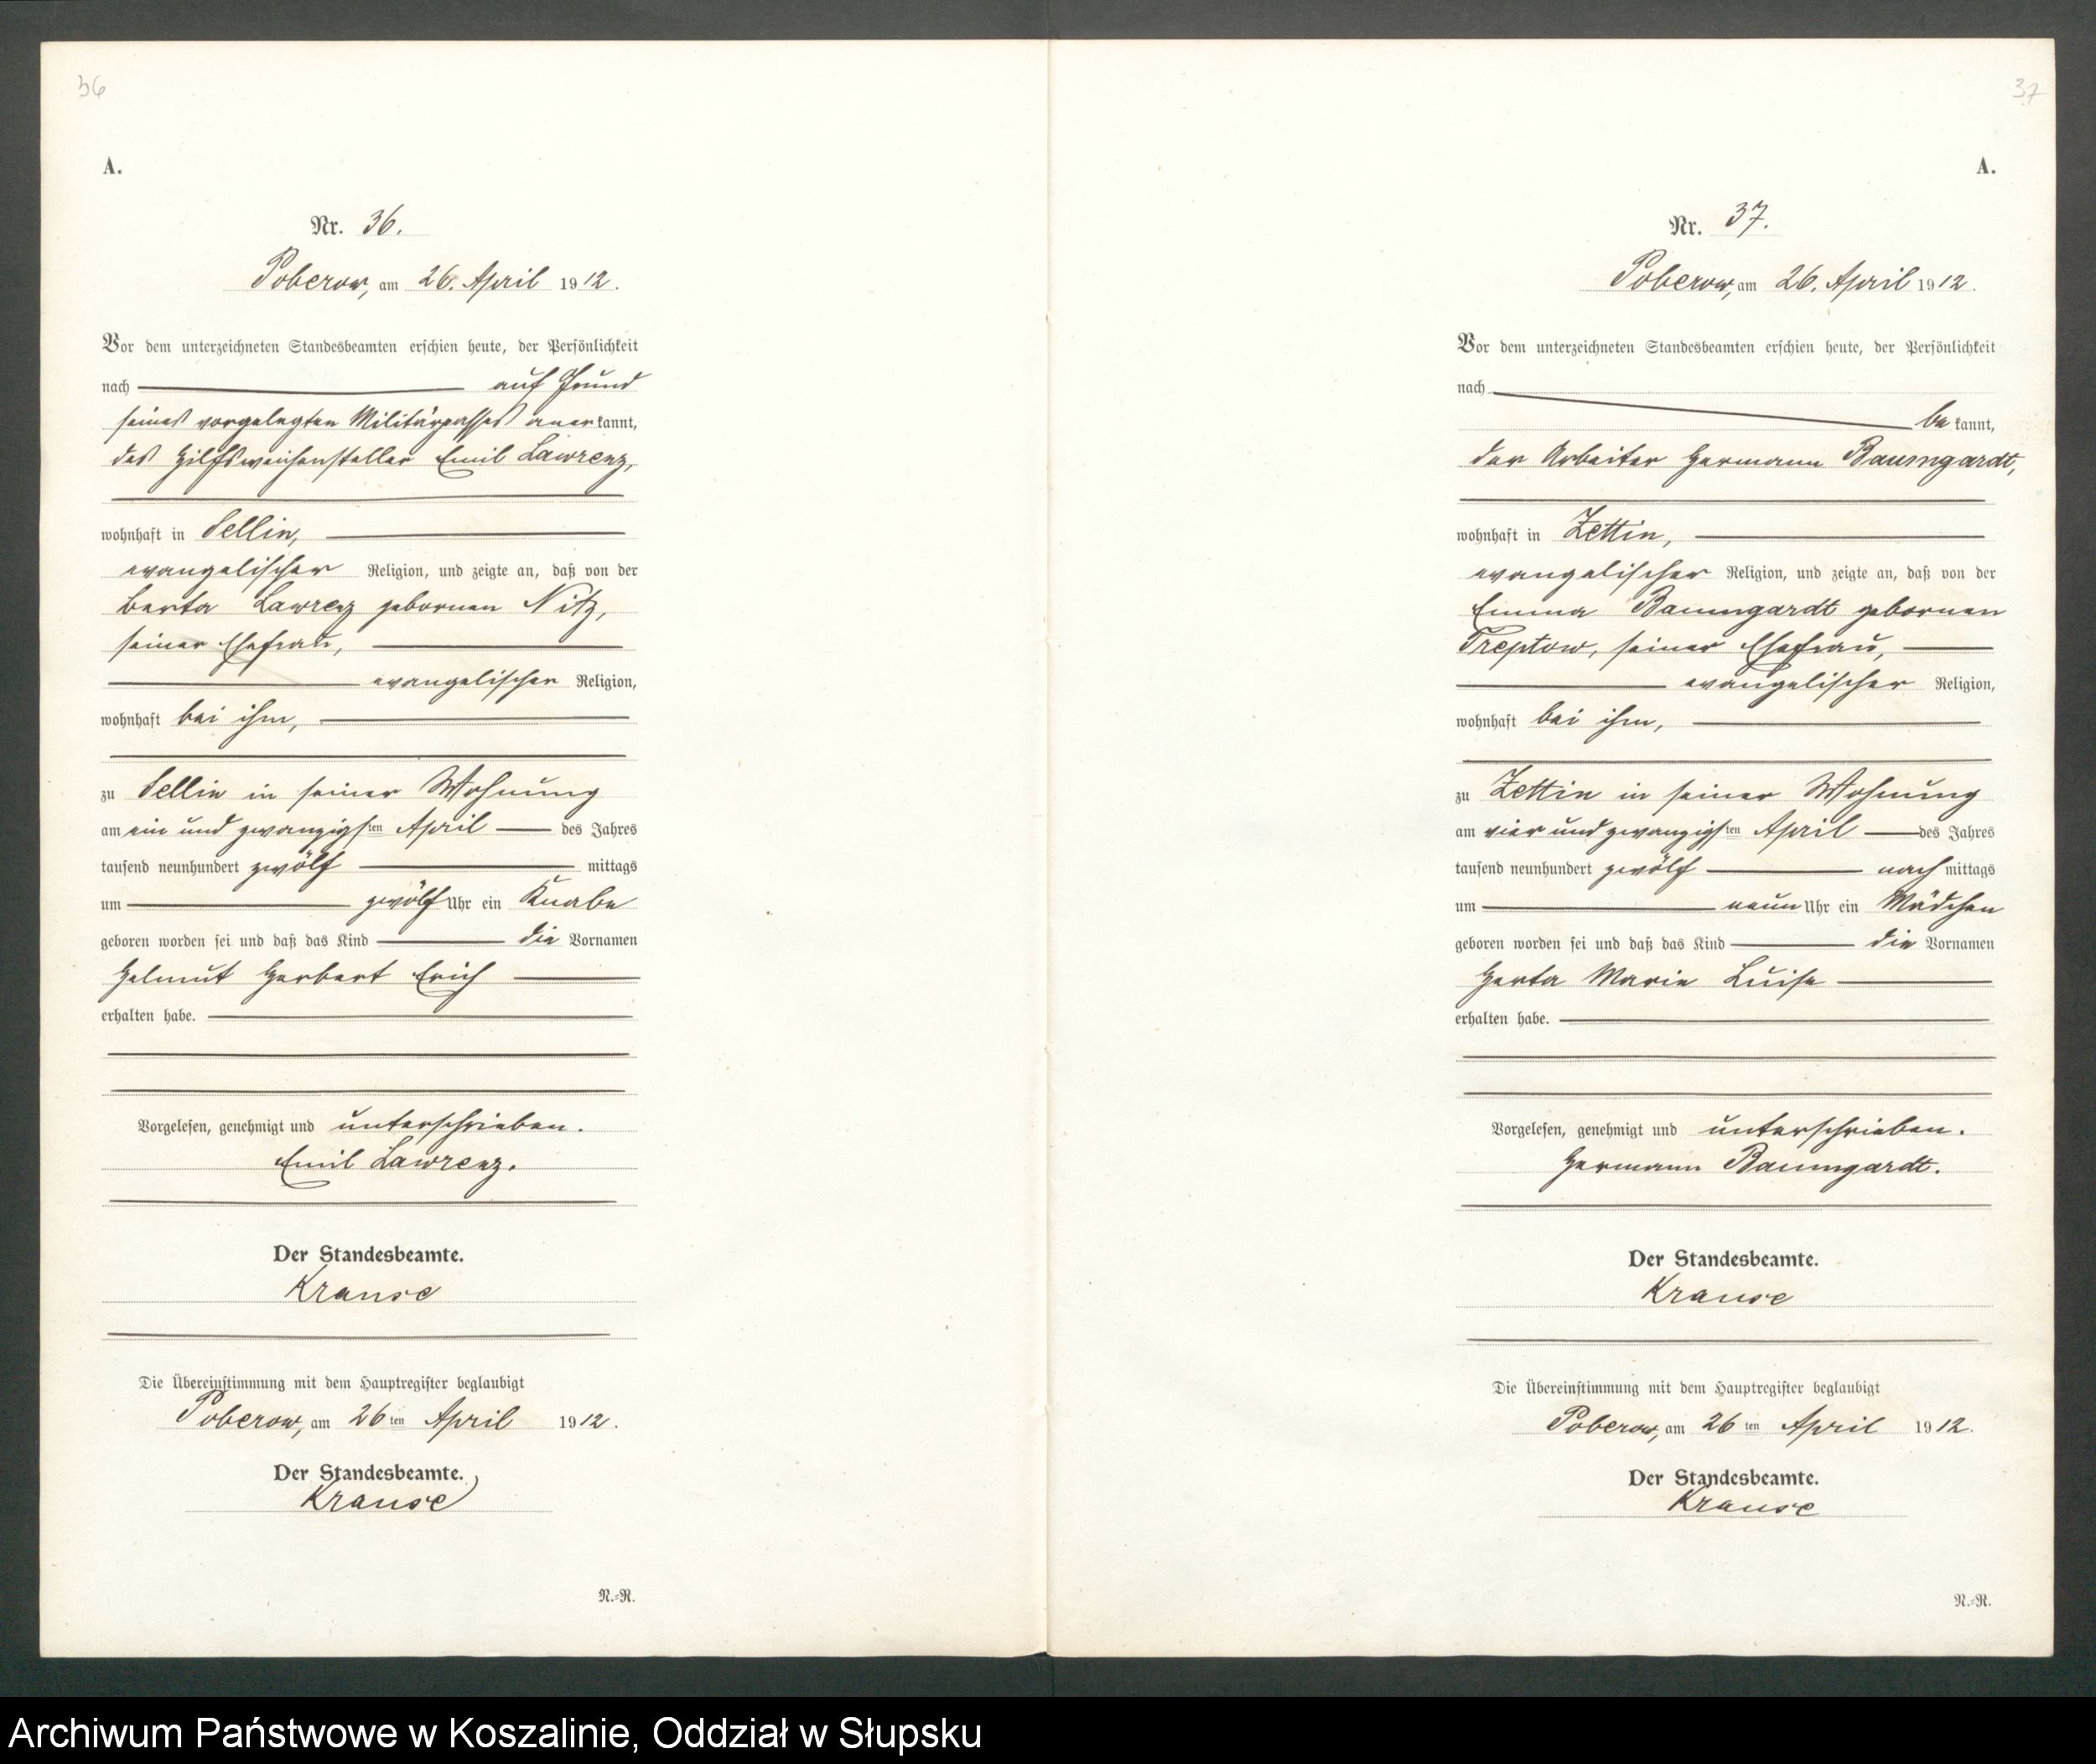 36
A.
Nr. 36.
Poberow, am 26. April 1912.
Vor dem unterzeichneten Standesbeamten erschien heute, der Persönlichkeit
nach auf Grund
seines vorgelegten Militärpasses anerkannt,
des Hilfsweichensteller Emil Lawrenz,
wohnhaft in Sellin,
evangelischer Religion, und zeigte an, daß von der
Berta Lawrenz gebornen Nitz,
seiner Ehefrau,
evangelischer Religion,
wohnhaft bei ihm,
zu Sellin in seiner Wohnung
am ein und zwanzigsten April des Jahres
tausend neunhundert zwölf mittags
um zwölf Uhr ein Knabe
geboren worden sei und daß das Kind die Vornamen
Helmut Herbert Erich
erhalten habe.
Vorgelesen, genehmigt und unterschrieben.
Emil Lawrenz.
Der Standesbeamte.
Krause
Die Übereinstimmung mit dem Hauptregister beglaubigt
Poberow, am 26ten April 1912.
Der Standesbeamte.
Krause
N.-R.
37
A.
Nr. 37.
Poberow, am 26. April 1912.
Vor dem unterzeichneten Standesbeamten erschien heute, der Persönlichkeit
nach
bekannt,
der Arbeiter Hermann Baumgardt,
wohnhaft in Zettin,
evangelischer Religion, und zeigte an, daß von der
Emma Baumgardt gebornen
Treptow, seiner Ehefrau,
evangelischer Religion,
wohnhaft bei ihm,
zu Zettin in seiner Wohnung
am vier und zwanzigsten April des Jahres
tausend neunhundert zwölf nachmittags
um neun Uhr ein Mädchen
geboren worden sei und daß das Kind die Vornamen
Herta Marie Luise
erhalten habe.
Vorgelesen, genehmigt und unterschrieben.
Hermann Baumgardt.
Der Standesbeamte.
Krause
Die Übereinstimmung mit dem Hauptregister beglaubigt
Poberow, am 26ten April 1912.
Der Standesbeamte.
Krause
N.-R.
Archiwum Państwowe w Koszalinie, Oddział w Słupsku